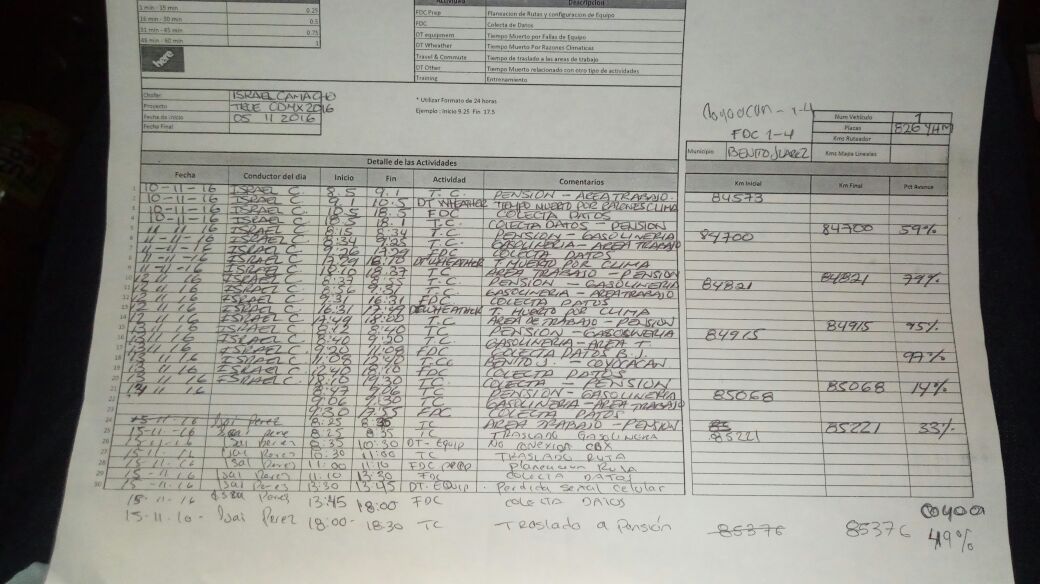 Actividad Descripcion
1 min - 15 min 0.25
FDC Prep Planeacion de Rutas y configuracion de Equipo
16 min - 30 min 0.5
FDC Colecta de Datos
31 min - 45 min 0.75
DT equipment Tiempo Muerto por Fallas de Equipo
46 min - 60 min 1
DT Wheather Tiempo Muerto Por Razones Climaticas
here
Travel & Commute Tiempo de traslado a las areas de trabajo
DT Other Tiempo Muerto relacionado con otro tipo de actividades
Training Entrenamiento
Chofer ISRAEL CAMACHO
Proyecto TRUE CDMX 2016
Fecha de inicio 05 11 2016
Fecha Final
* Utilizar Formato de 24 horas
Ejemplo : Inicio 9.25 Fin 17.5
FDC 1-4
Num Vehiculo 1
Placas 826 YHM
Kms Ruteador
Municipio BENITO JUAREZ Kms Mapa Lineales
Detalle de las Actividades
Fecha Conductor del dia Inicio Fin Actividad Comentarios Km Inicial Km Final Pct Avance
10-11-16 ISRAEL C. 8.5 9.1 T.C. PENSION - AREA TRABAJO. 84573
10-11-16 ISRAEL C. 9.1 10.5 DT WHEATHER TIEMPO MUERTO POR RAZONES CLIMA
10-11-16 ISRAEL C. 10.5 18.5 FDC COLECTA DATOS
10-11-16 ISRAEL C. COLECTA DATOS - PENSION 84700 59%
ISRAEL C. 8:15 8:34 T.C. PENSION - GASOLINERIA 84700
11-11-16 ISRAEL C. 8:34 9:25 T.C. GASOLINERIA - AREA TRABAJO
11-11-16 ISRAEL C. 9:26 FDC COLECTA DATOS
11-11-16 ISRAEL C. DT WHEATHER T. MUERTO POR CLIMA
11-11-16 ISRAEL C. 18:10 18:37 T.C. AREA TRABAJO - PENSION 84821 79%
ISRAEL C. T.C. PENSION - GASOLINERIA 84821
12 11 16 ISRAEL C. T.C. GASOLINERIA - AREA TRABAJO
12 11 16 ISRAEL C. 9:31 16:31 FDC COLECTA DATOS
12 11 16 ISRAEL C. 16:31 T. MUERTO POR CLIMA
ISRAEL C. T.C. AREA DE TRABAJO - PENSION 84915 95%
13 11 16 ISRAEL C. 8:12 8:40 T.C. PENSION - GASOLINERIA 84915
13 11 16 ISRAEL C. 8:40 9:20 T.C. GASOLINERIA - AREA T.
13 11 16 ISRAEL C. 9:20 11:08 FDC COLECTA DATOS B.J. 97%
13 11 16 ISRAEL C. 11:08 BENITO J. - COYOACAN
13 11 16 ISRAEL C. 18:10 FDC COLECTA DATOS
13 11 16 ISRAEL C. 18:10 19:30 TC COLECTA - PENSION 85068 14%
TC PENSION - GASOLINERIA 85068
9:06 9:30 TC GASOLINERIA - AREA TRABAJO
9:30 17:55 FDC COLECTA DATOS
TC AREA TRABAJO - PENSION 85221 33%
15-11-16 8:25 8:35 TC TRASLADO GASOLINERA 85221
15-11-16 Isai Perez 8:35 10:30 DT-Equip No CONEXION
15-11-16 Isai Perez 10:30 11:00 TC TRASLADO RUTA
15-11-16 Isai Perez 11:00 11:10 FDC prep Planeacion Ruta
15-11-16 Isai Perez 11:10 13:30 FDC COLECTA DATOS
15-11-16 Isai Perez 13:30 13:45 DT-Equip. Perdida señal celular
15-11-16 Isai Perez 13:45 18:00 FDC COLECTA DATOS
15-11-16 Isai Perez 18:00 - 18:30 TC TRASLADO a PENSIÓN 85376 85376 49%